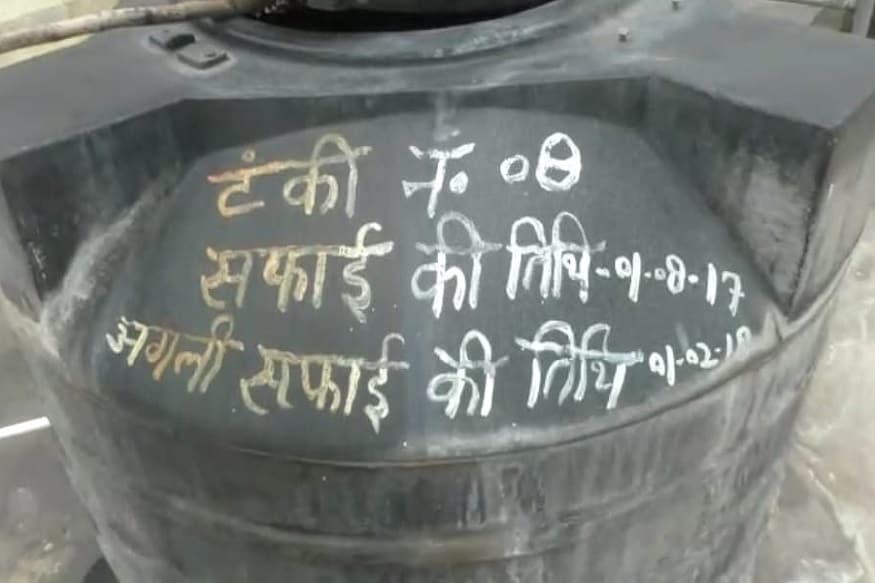 टंकी नं. 08
सफाई की तिथि-01-08-17
अगली सफाई की तिथि 01-02-18